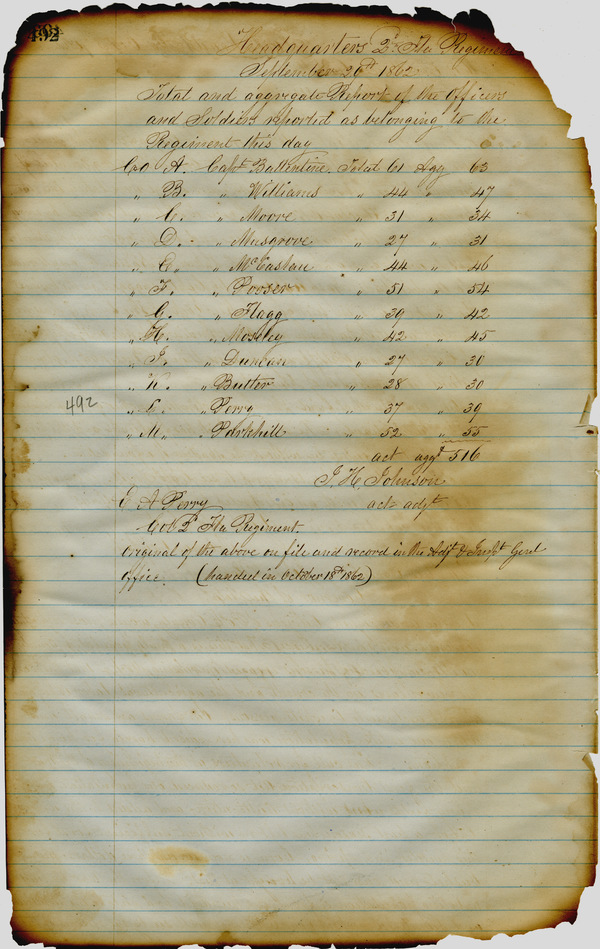 492
Headquarters 2d Fla Regiment
September 26th 1862
Total and aggregate Report of the Officers
and Soldiers reported as belonging to the
Regiment this day
Co A. Capt Ballentine Total 61 Agg 63
" B. " Williams " 44 " 47
" C. " Moore " 31 " 34
" D. " Musgrove " 27 " 31
" E. " McCaslan " 44 " 46
" F. " Pooser " 51 " 54
" G. " Flagg " 39 " 42
" H. " Moseley " 42 " 45
" I. " Duncan " 27 " 30
" K. " Butler " 28 " 30
492
" L. " Perry " 37 " 39
" M. " Parkhill " 52 " 55
act aggt 516
J. H. Johnson
E A Perry act adjt
Col 2d Fla Regiment
Original of the above on file and record in the Adjt & Inspt Genl
Office. (handed in October 18th 1862)